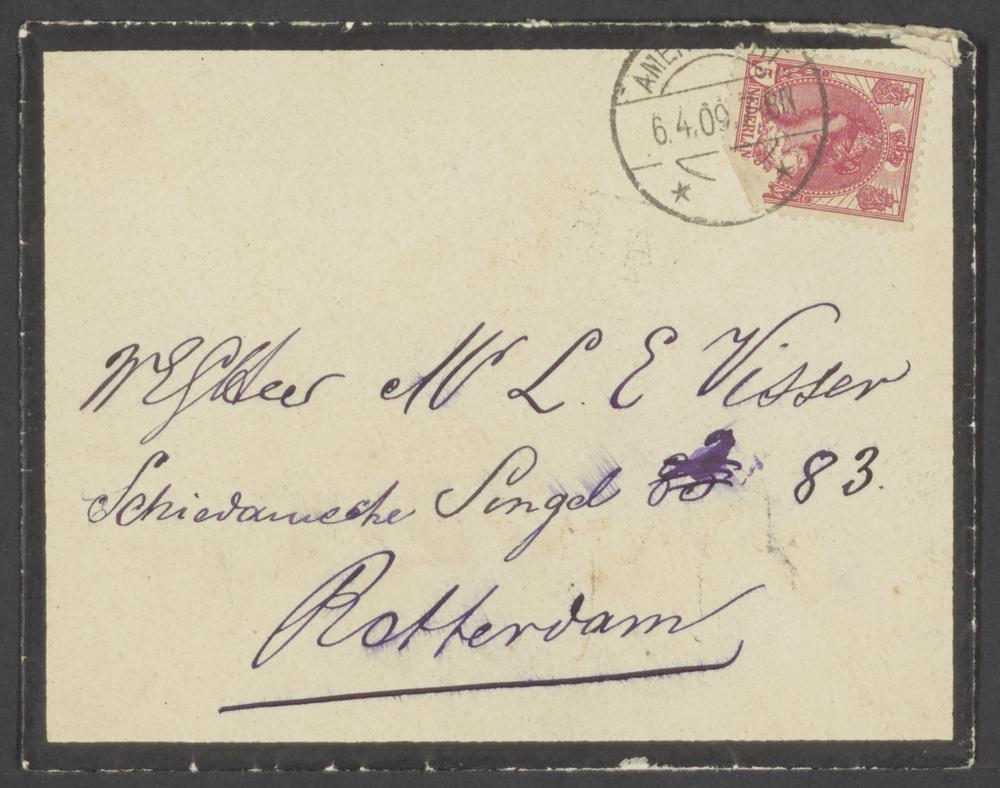 AMER
6.4.09. 8N
5
NEDERLAN
WEGHeer Mr L. E Visser
Schiedamsche Singel 83.
Rotterdam